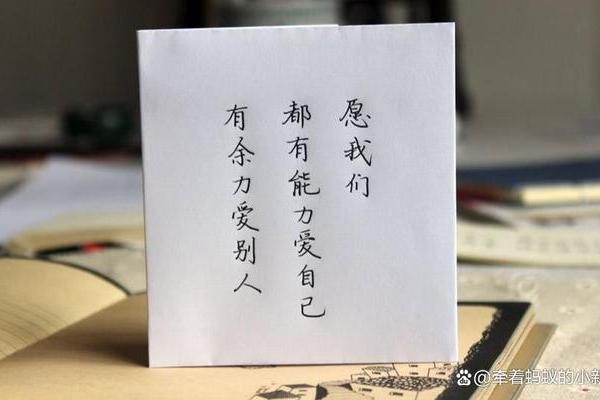 愿我们
都有能力爱自己
有余力爱别人
@牵着蚂蚁的小新